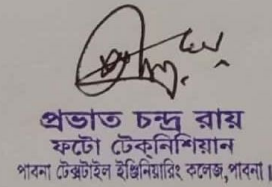 প্রভাত চন্দ্র রায়
ফটো টেক্‌নিশিয়ান
পাবনা টেক্সটাইল ইঞ্জিনিয়ারিং কলেজ, পাবনা।